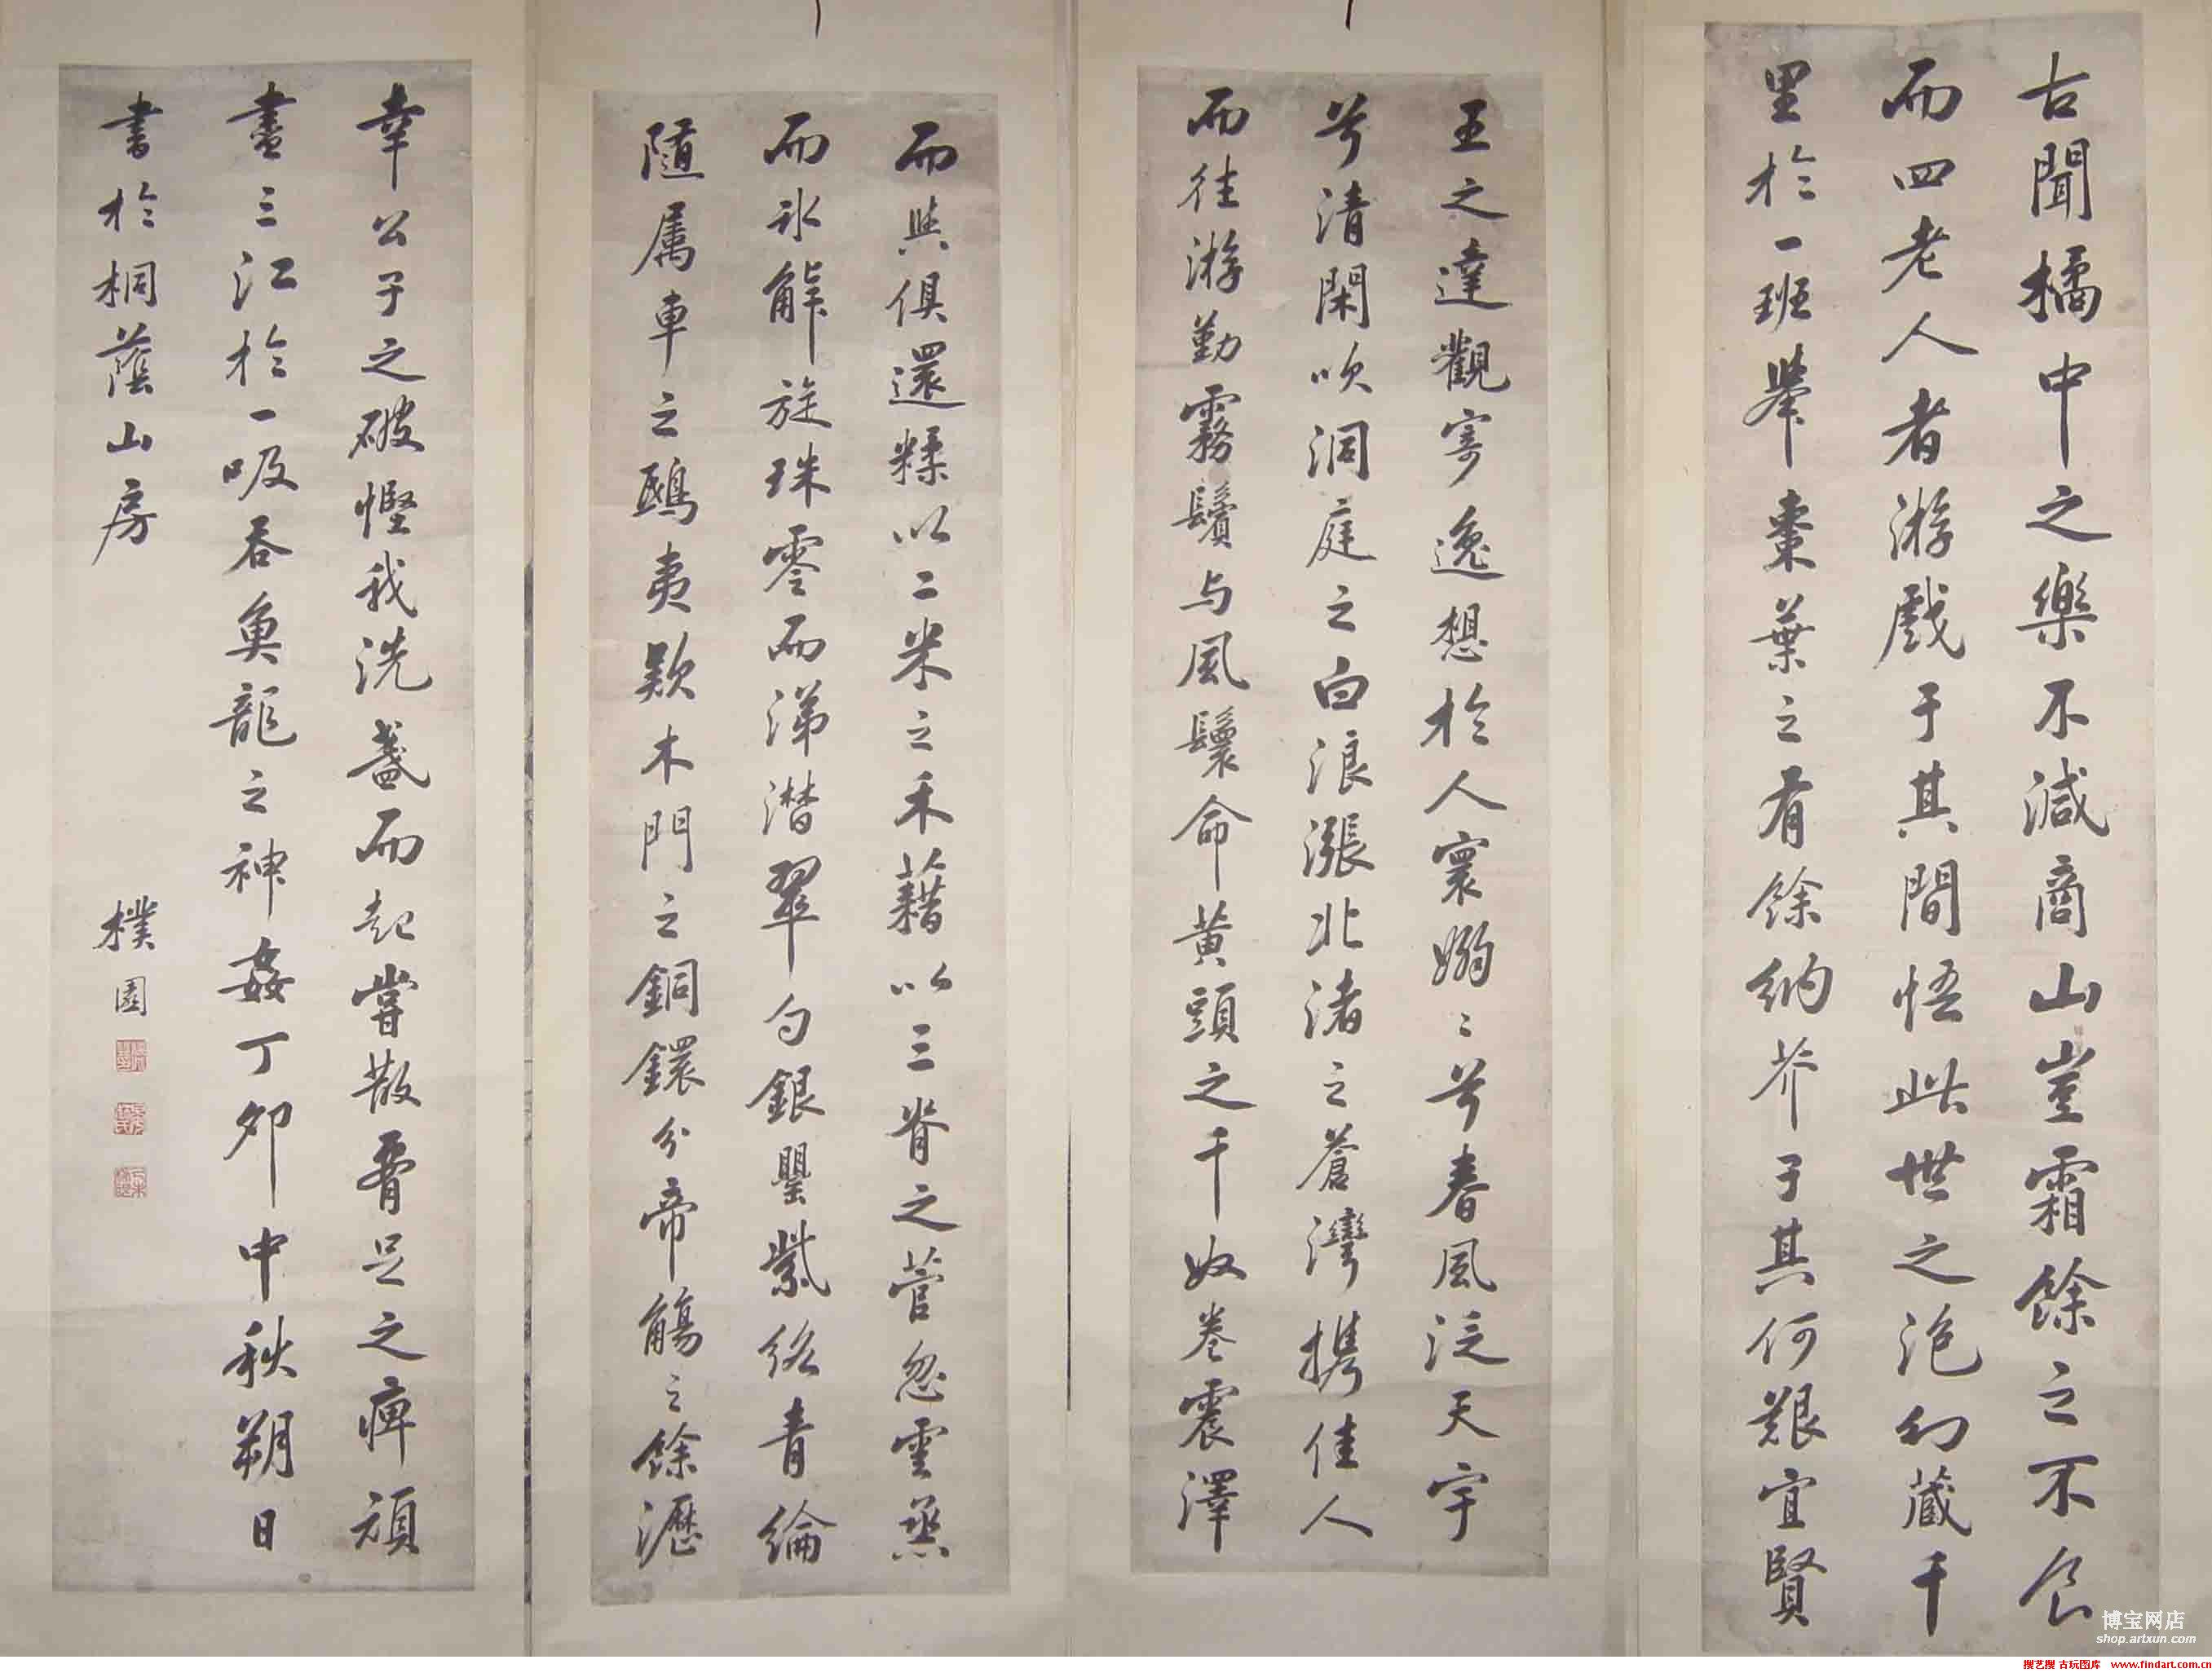 古聞橘中之樂不減商山豈霜餘之不食
而四老人者游戲于其間悟此世之泡幻藏千
里於一班舉棗葉之有餘納芥于其何艱宜賢
王之達觀寄逸想於人寰嫋〻兮春風泛天宇
兮清閑吹洞庭之白浪漲北渚之蒼灣携佳人
而往游勤霧鬢与風鬟命黄頭之千奴卷震澤
而與俱還糅以二米之禾藉以三脊之菅忽雲蒸
而氷解旋珠零而涕潸翠勺銀罌紫絡青綸
隨属車之鴟夷欵木門之銅鐶分帝觴之餘瀝
幸公子之破慳我洗盞而起嘗散腰足之痺頑
盡三江於一吸吞魚龍之神姦丁卯中秋朔日
書於桐蔭山房
樸園
博宝网店
shop.artxun.com
搜艺搜 古玩图库 www.findart.com.cn